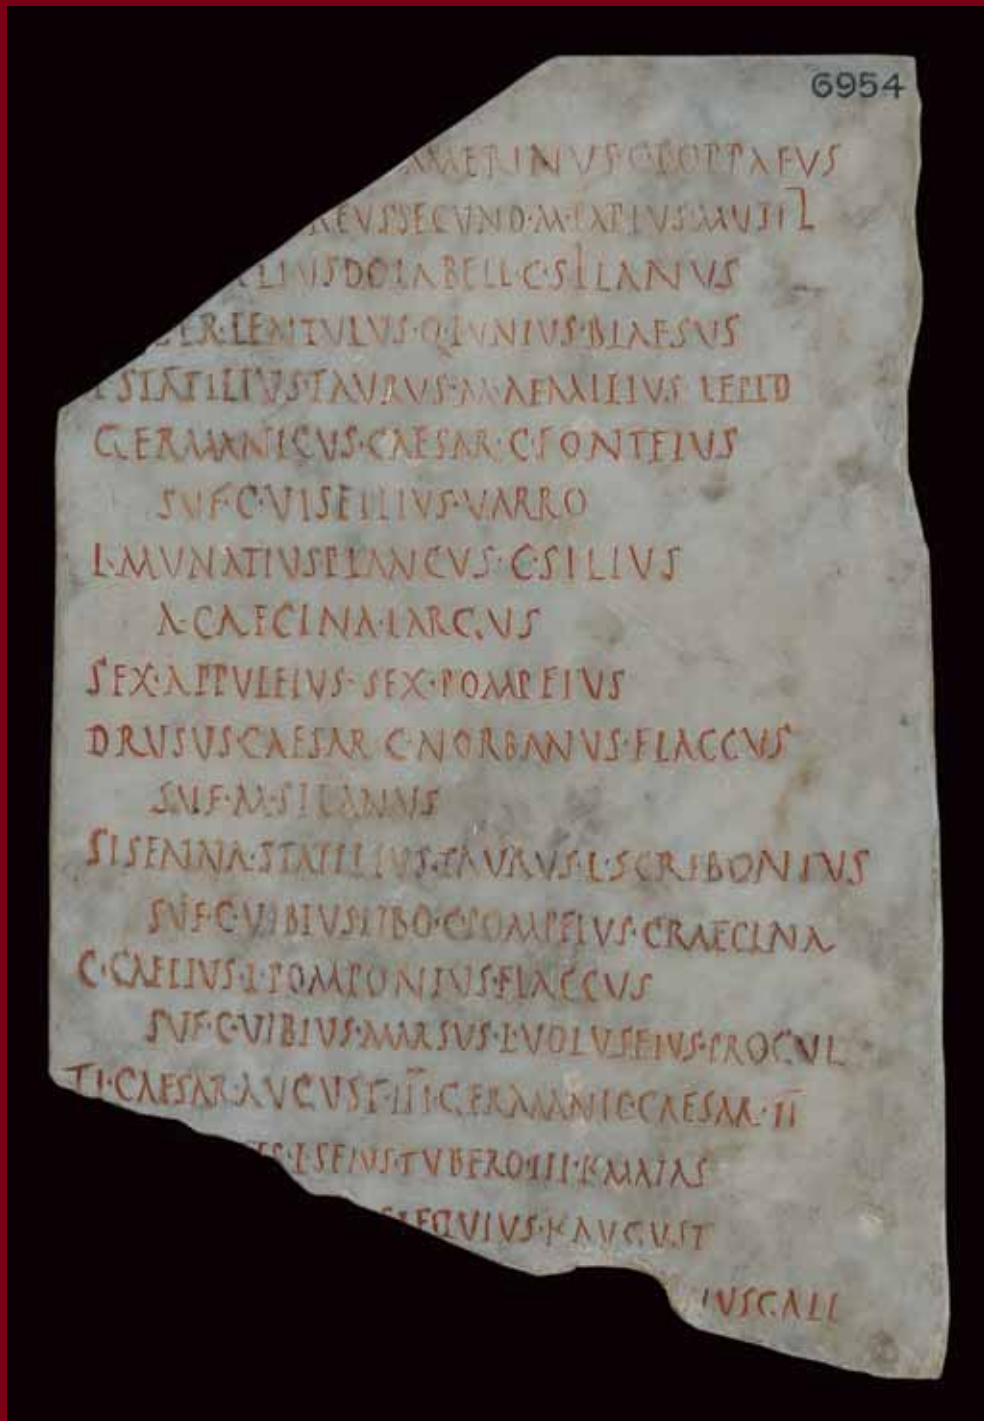 6954
AMERINUS·Q·POPPAEUS
AEUS SECUND·M·PAPIUS·MUTIL
ELIUS DOLABELL·C·SILANUS
ER·LENTULUS·Q·IUNIUS·BLAESUS
T STATILIUS·TAURUS·M·AEMILIUS·LEPID
GERMANICUS·CAESAR·C·FONTEIUS
SUF·C·VISELLIUS·VARRO
L·MUNATIUS PLANCUS·C·SILIUS
A·CAECINA·LARGUS
SEX·APPULEIUS·SEX·POMPEIUS
DRUSUS CAESAR C·NORBANUS·FLACCUS
SUF·M·SILANUS
SISENNA·STATILIUS·TAURUS·L·SCRIBONIUS
SUF·C·VIBIUS LIBO·C·POMPEIUS·GRAECINA
C·CAELIUS·L·POMPONIUS·FLACCUS
SUF·C·VIBIUS·MARSUS·L·VOLUSEIUS·PROCUL
TI·CAESAR·AUGUST·III·GERMANIC CAESAR·II
L·SEIUS·TUBERO·III·K MAIAS
K AUGUST
IUS GALL